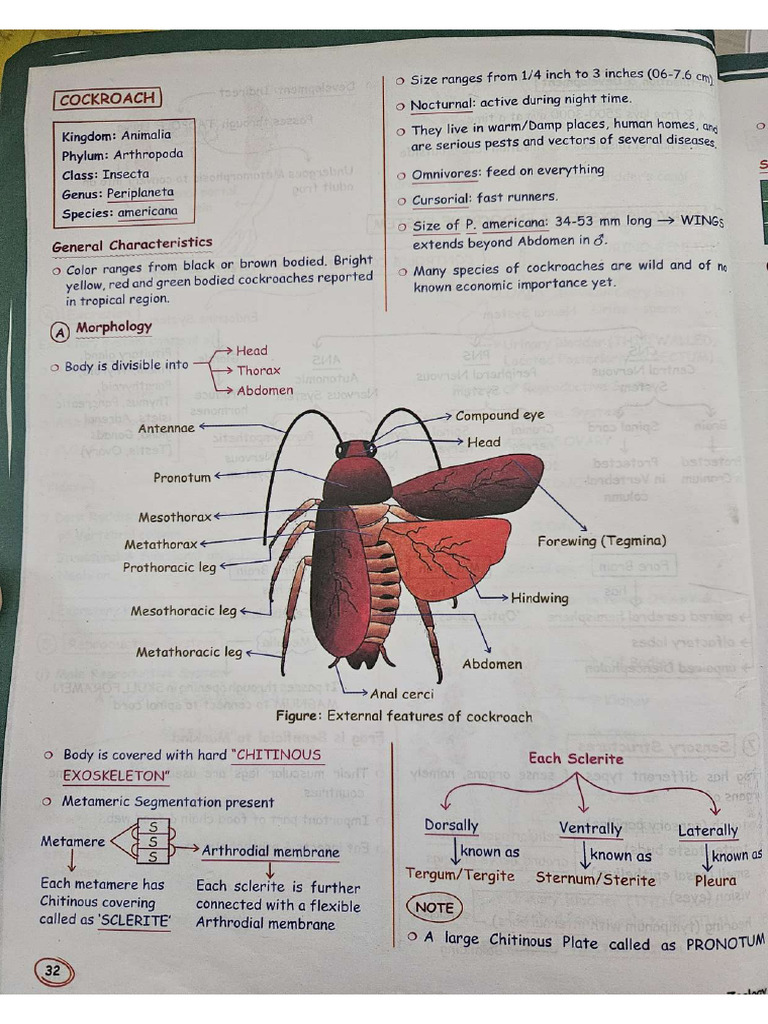 COCKROACH
Kingdom: Animalia
Phylum: Arthropoda
Class: Insecta
Genus: Periplaneta
Species: americana
General Characteristics
Color ranges from black or brown bodied. Bright
yellow, red and green bodied cockroaches reported
in tropical region.
Size ranges from 1/4 inch to 3 inches (06-7.6 cm)
Nocturnal: active during night time.
They live in warm/Damp places, human homes, and
are serious pests and vectors of several diseases.
Omnivores: feed on everything
Cursorial: fast runners.
Size of P. americana: 34-53 mm long → WINGS
extends beyond Abdomen in ♂.
Many species of cockroaches are wild and of no
known economic importance yet.
A Morphology
Body is divisible into
Head
Thorax
Abdomen
Antennae
Pronotum
Mesothorax
Metathorax
Prothoracic leg
Mesothoracic leg
Metathoracic leg
Compound eye
Head
Forewing (Tegmina)
Hindwing
Abdomen
Anal cerci
Figure: External features of cockroach
Body is covered with hard "CHITINOUS
EXOSKELETON"
Metameric Segmentation present
Metamere
S
S
S
Arthrodial membrane
Each metamere has
Chitinous covering
called as 'SCLERITE'
Each sclerite is further
connected with a flexible
Arthrodial membrane
Each Sclerite
Dorsally
Ventrally
Laterally
known as
known as
known as
Tergum/Tergite
Sternum/Sterite
Pleura
NOTE
A large Chitinous Plate called as PRONOTUM
32